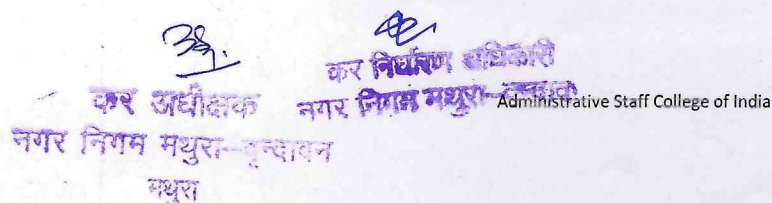 कर अधीक्षक
नगर निगम मथुरा-वृन्दावन
मथुरा
कर निर्धारण अधिकारी
नगर निगम मथुरा-वृन्दावन
Administrative Staff College of India